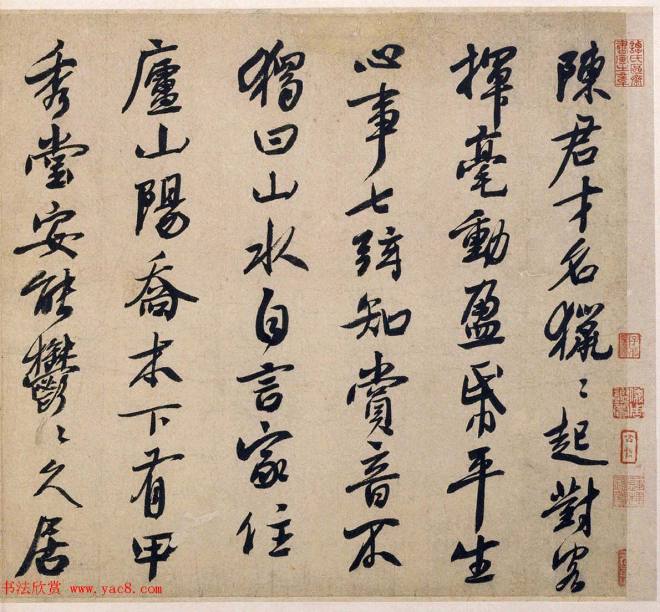 陳君才名獵〻起對客
揮毫動盈帋平生
心事七弦知賞音不
獨曰山水自言家住
廬山陽喬木下有甲
秀堂安能鬱〻久居
譚氏區齋書畫之章
书法欣赏 www.yac8.com